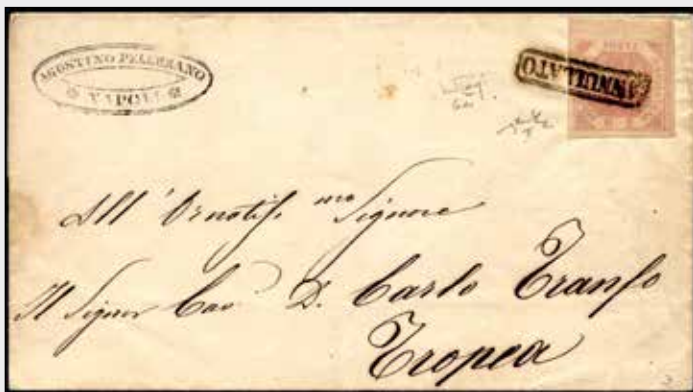 AGOSTINO PELLERANO
NAPOLI
ANNULLATO
All' Ornatiss.mo Signore
Il Signor Cav. D. Carlo Tranfo
Tropea